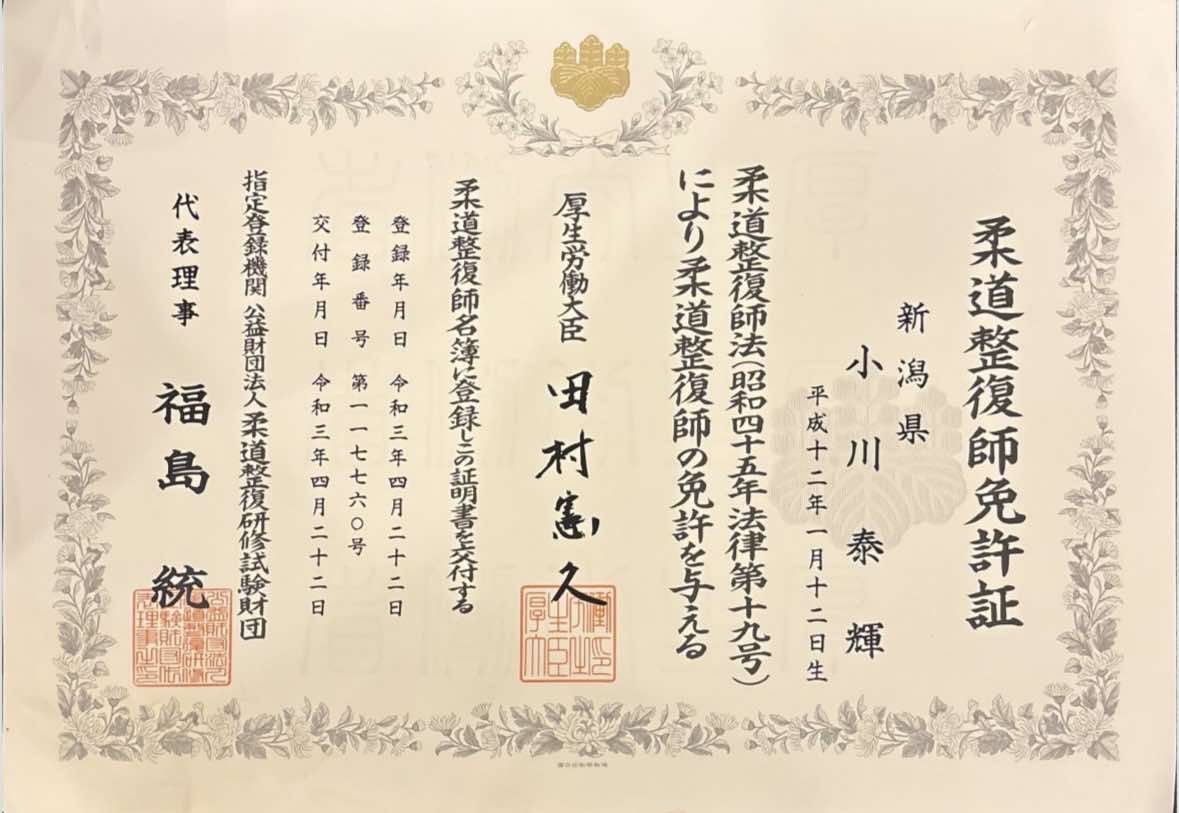 柔道整復師免許証
新潟県
小川泰輝
平成十二年一月十二日生
柔道整復師法(昭和四十五年法律第十九号)
により柔道整復師の免許を与える
厚生労働大臣 田村憲久
柔道整復師名簿に登録しこの証明書を交付する
登録年月日 令和三年四月二十二日
登録番号 第一一七七六〇号
交付年月日 令和三年四月二十二日
指定登録機関 公益財団法人柔道整復研修試験財団
代表理事 福島統